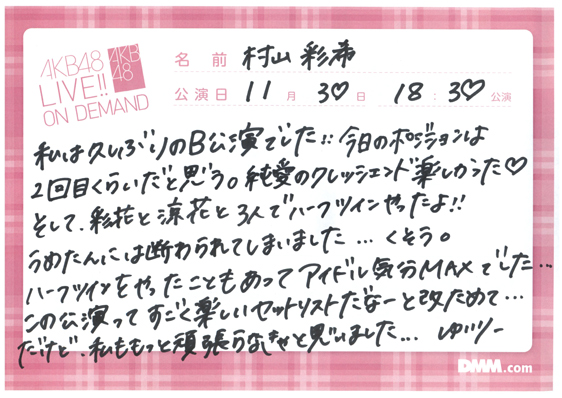 AKB48
LIVE!!
ON DEMAND
AKB
48
名前 村山彩希
公演日 11月30日 18:30公演
私は久しぶりのB公演でした!! 今日のポジションは
2回目くらいだと思う。純愛のクレッシェンド楽しかった♡
そして、彩花と涼花と3人でハーフツインやったよ!!
うめたんには断わられてしまいました… くそう。
ハーフツインをやったこともあってアイドル気分MAXでした…
この公演ってすごく楽しいセットリストだなーと改ためて…
だけど、私ももっと頑張らなきゃと思いました… ゆいりー
DMM.com